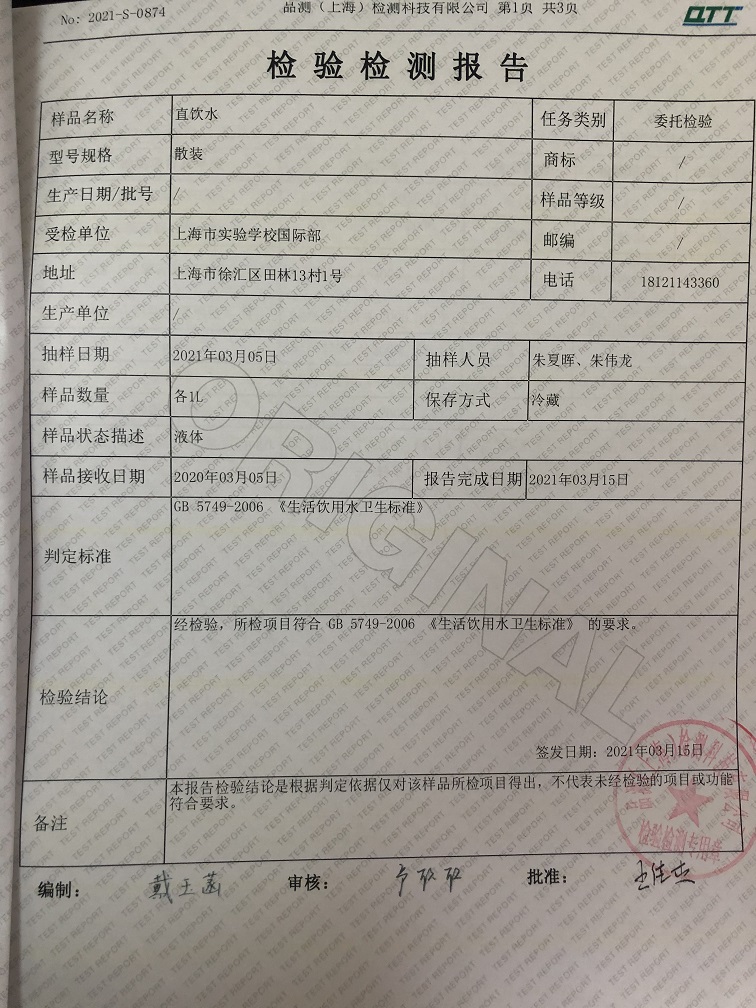 No: 2021-S-0874
品测（上海）检测科技有限公司 第1页 共3页
QTT
检验检测报告
样品名称 直饮水 任务类别 委托检验
型号规格 散装 商标 /
生产日期/批号 / 样品等级 /
受检单位 上海市实验学校国际部 邮编 /
地址 上海市徐汇区田林13村1号 电话 18I21143360
生产单位 /
抽样日期 2021年03月05日 抽样人员 朱夏晖、朱伟龙
样品数量 各1L 保存方式 冷藏
样品状态描述 液体
样品接收日期 2020年03月05日 报告完成日期 2021年03月15日
判定标准 GB 5749-2006 《生活饮用水卫生标准》
检验结论 经检验，所检项目符合 GB 5749-2006 《生活饮用水卫生标准》 的要求。
签发日期: 2021年03月15日
备注 本报告检验结论是根据判定依据仅对该样品所检项目得出，不代表未经检验的项目或功能
符合要求。
编制: 戴玉菡 审核: 批准: 王佳杰
ORIGINAL
TEST REPORT
检验检测专用章